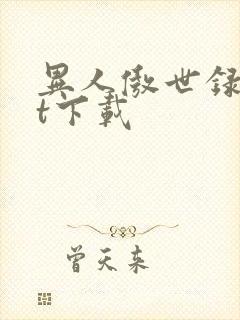 異人傲世録
t下載
曾天来